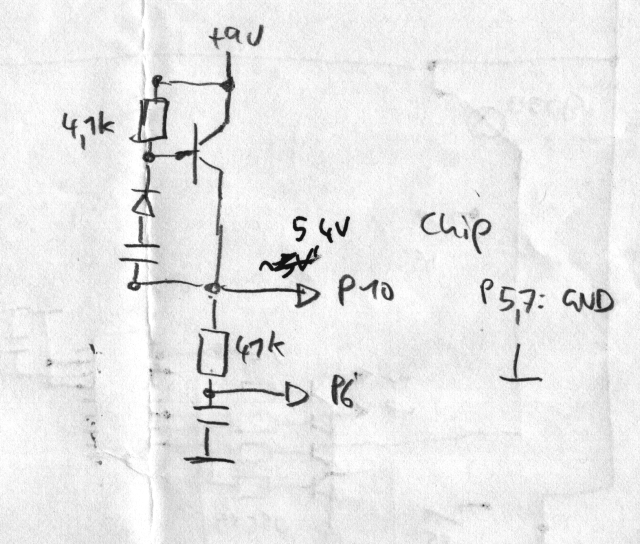 +9V
4,7k
5 4V
Chip
P10
P 5,7: GND
47k
P6